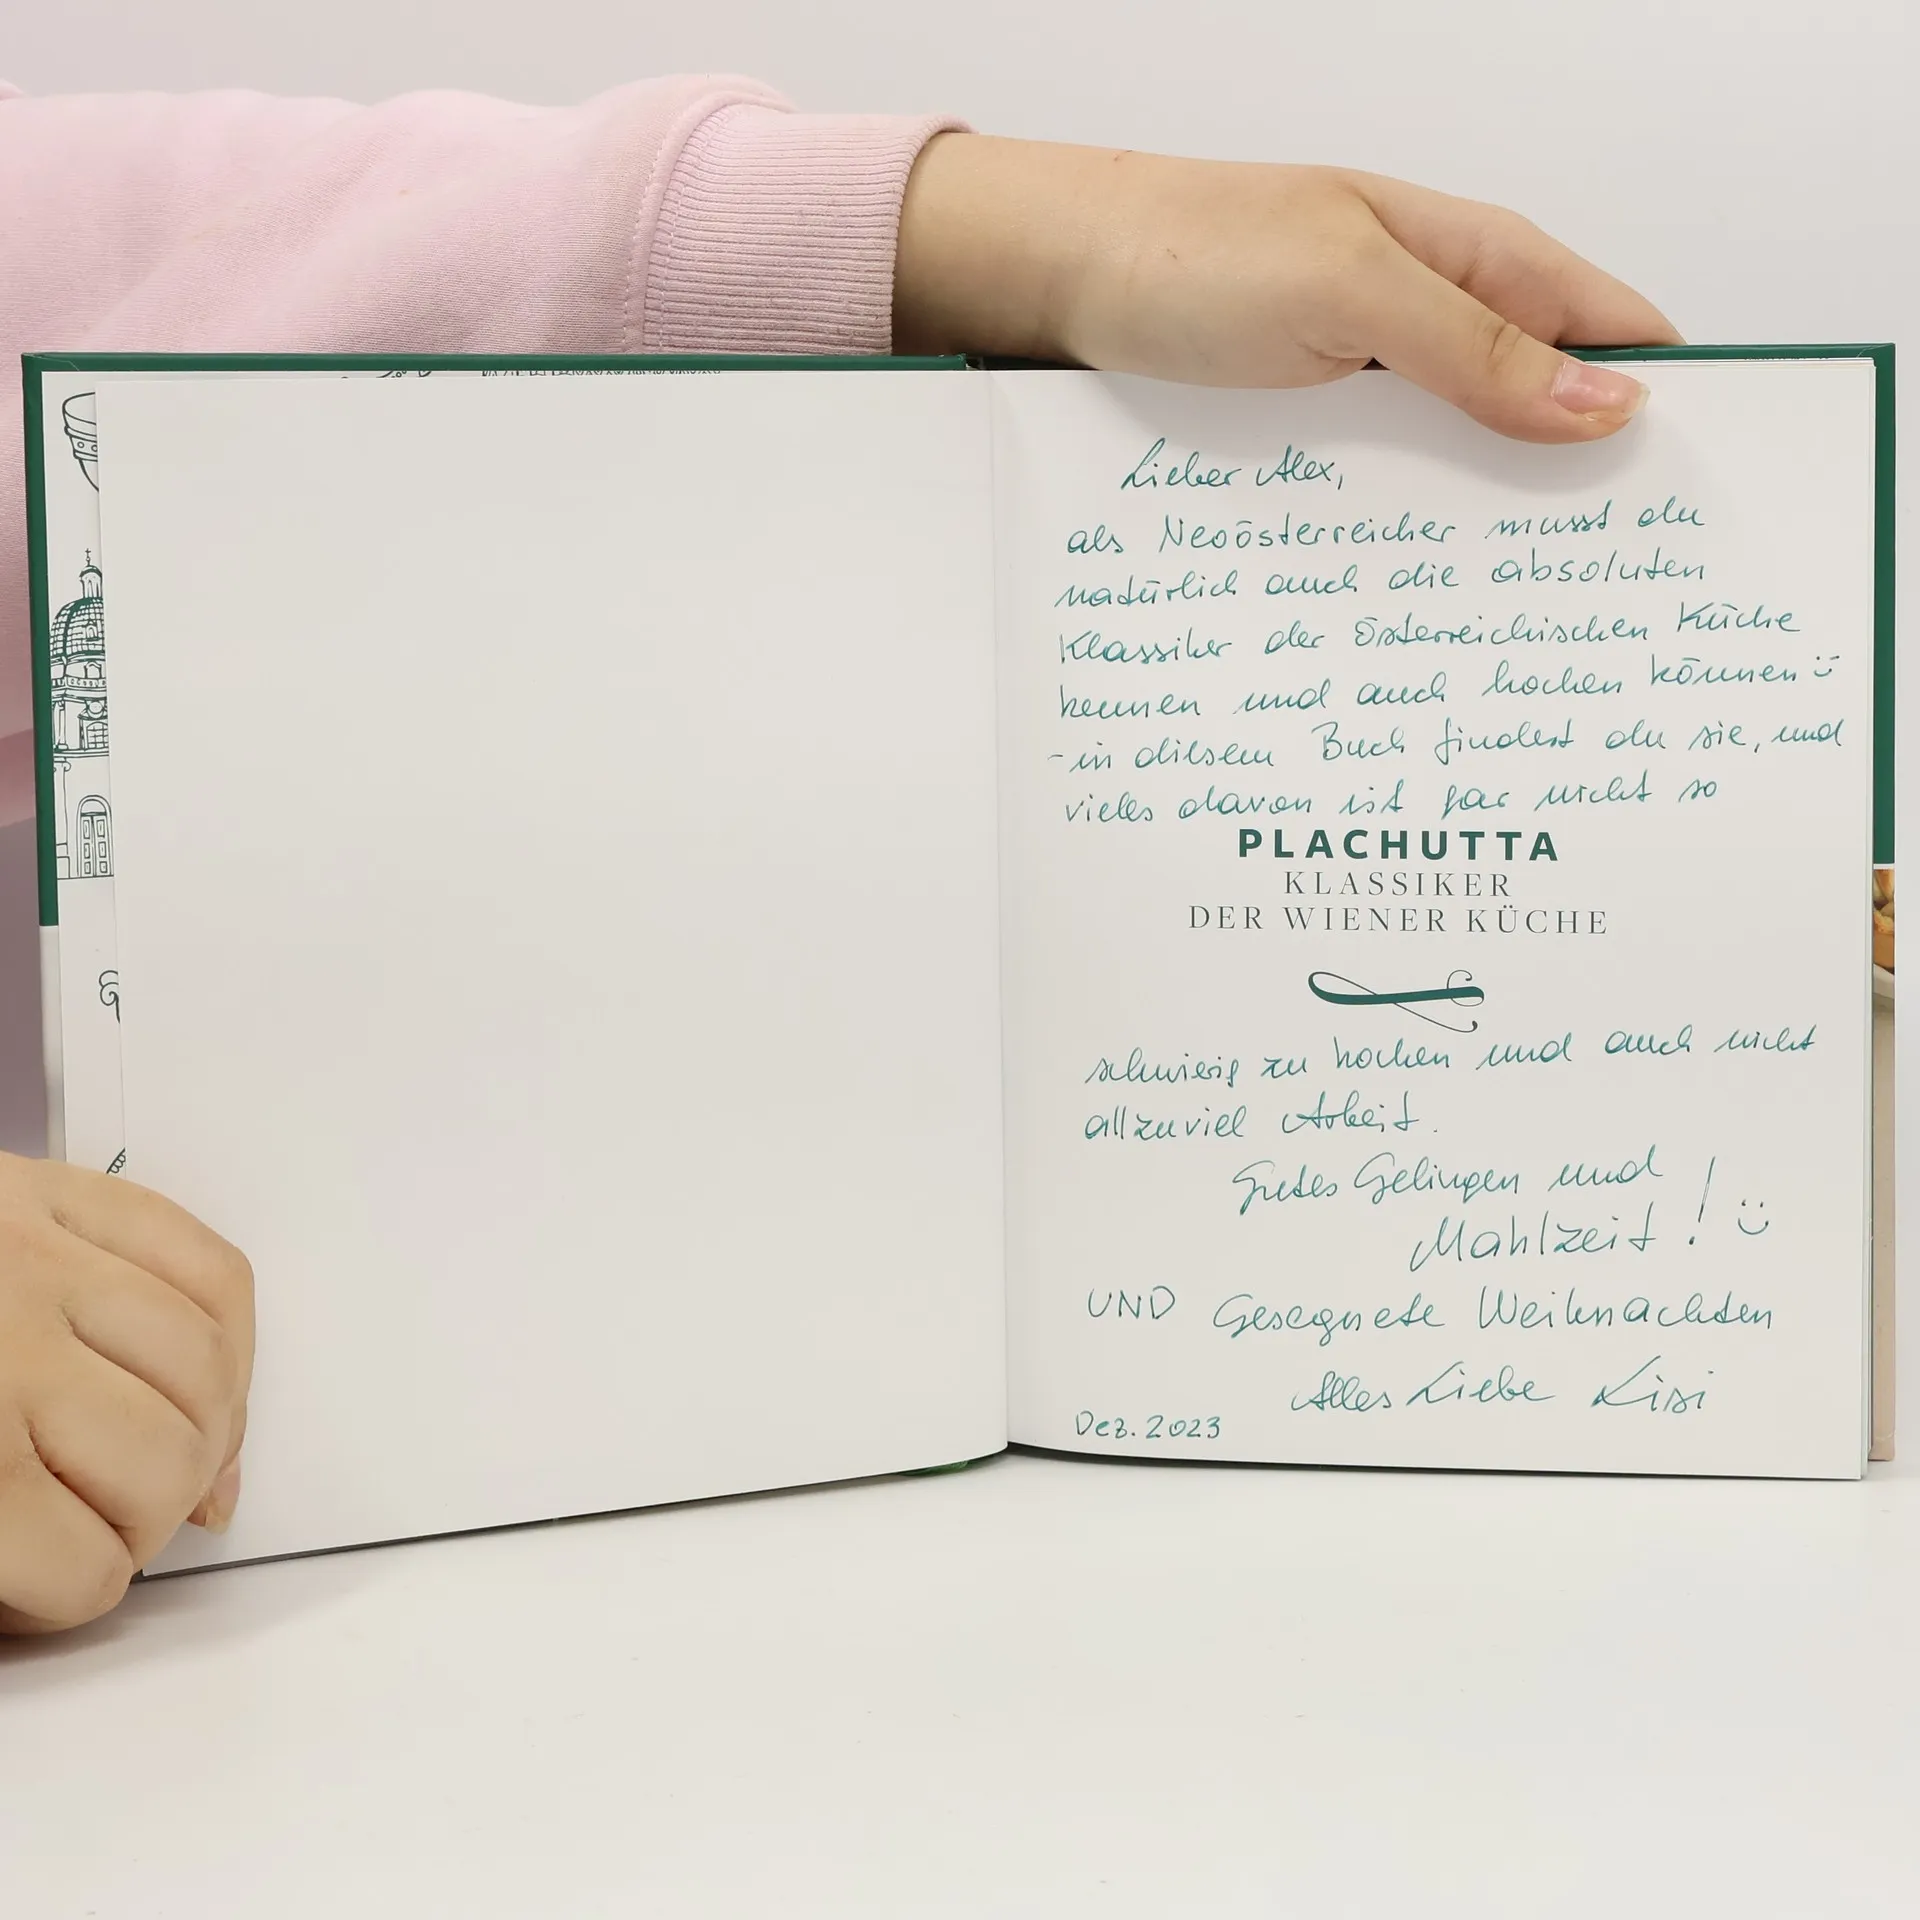 Lieber Alex,
als Neoösterreicher musst du
natürlich auch die absoluten
Klassiker der österreichischen Küche
kennen und auch kochen können :)
- in diesem Buch findest du sie, und
vieles davon ist gar nicht so
PLACHUTTA
KLASSIKER
DER WIENER KÜCHE
schwierig zu kochen und auch nicht
allzuviel Arbeit.
Gutes Gelingen und
Mahlzeit! :)
UND Gesegnete Weihnachten
Alles Liebe Lisi
Dez. 2023